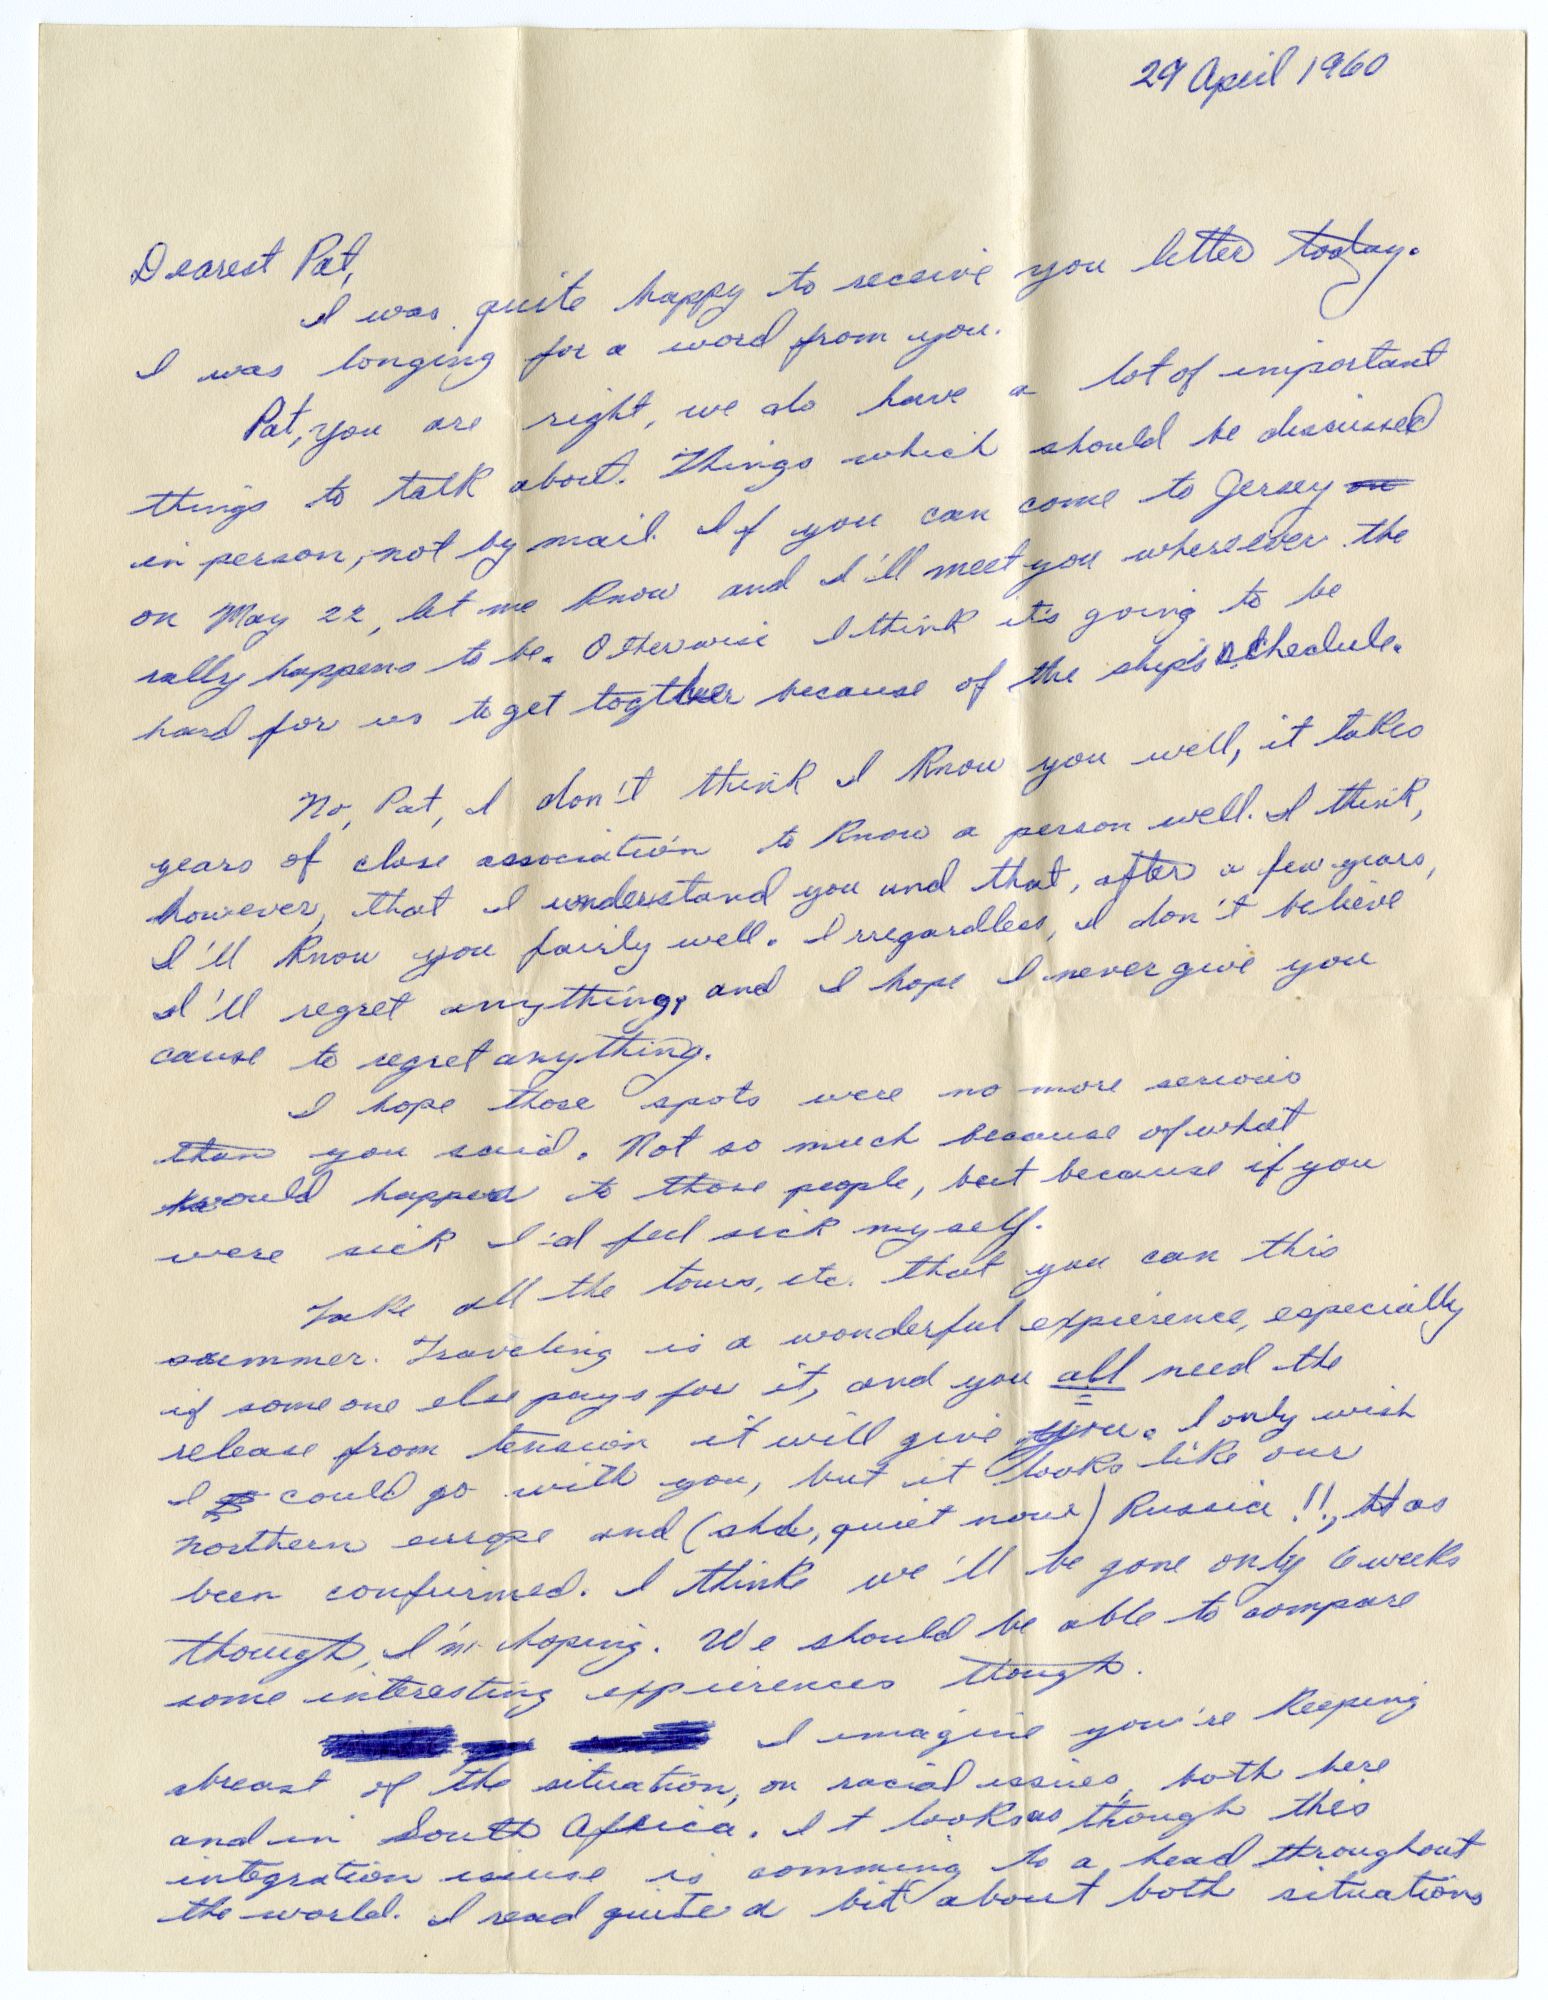 29 April 1960
Dearest Pat,
I was quite happy to receive you letter today.
I was longing for a word from you.
Pat, you are right, we do have a lot of important
things to talk about. Things which should be discussed
in person, not by mail. If you can come to Jersey on
on May 22, let me know and I'll meet you whereever the
rally happens to be. Otherwise I think it's going to be
hard for us to get together because of the ship's schedule.
No, Pat, I don't think I know you well, it takes
years of close association to know a person well. I think,
however, that I understand you and that, after a few years,
I'll know you fairly well. Irregardless, I don't believe
I'll regret anything, and I hope I never give you
cause to regret anything.
I hope those spots were no more serious
than you said. Not so much because of what
would happen to those people, but because if you
were sick I'd feel sick myself.
Take all the tours, etc. that you can this
summer. Traveling is a wonderful expierence, especially
if someone else pays for it, and you all need the
release from tension it will give you. I only wish
I could go with you, but it looks like our
northern europe and (shh, quiet now) Russia!!, has
been confirmed. I think we'll be gone only 6 weeks
though, I'm hoping. We should be able to compare
some interesting expierences though.
I imagine you're keeping
abreast of the situation, on racial issues, both here
and in South Africa. It looks as though this
integration issue is comming to a head throughout
the world. I read quite a bit about both situations